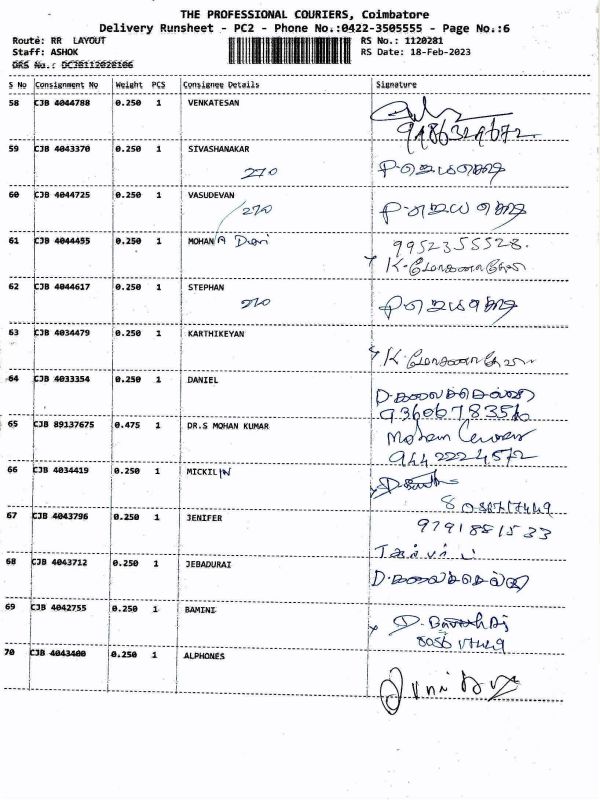 THE PROFESSIONAL COURIERS, Coimbatore
Delivery Runsheet - PC2 - Phone No.:0422-3505555 - Page No.:6
Route: RR LAYOUT RS No.: 1120281
Staff: ASHOK RS Date: 18-Feb-2023
DRS No.: DCJB112028106
S No Consignment No Weight PCS Consignee Details Signature
58 CJB 4044788 0.250 1 VENKATESAN
59 CJB 4043370 0.250 1 SIVASHANAKAR
270
60 CJB 4044725 0.250 1 VASUDEVAN
270
61 CJB 4044455 0.250 1 MOHAN A 9952355528.
K. மோகனாதேவி
62 CJB 4044617 0.250 1 STEPHAN
270
63 CJB 4034479 0.250 1 KARTHIKEYAN
K. மோகனாதேவி
64 CJB 4033354 0.250 1 DANIEL
D. கலைச்செல்வி
65 CJB 89137675 0.475 1 DR.S MOHAN KUMAR
9442224572
66 CJB 4034419 0.250 1 MICKILIN
67 CJB 4043796 0.250 1 JENIFER 9791881533
68 CJB 4043712 0.250 1 JEBADURAI D. கலைச்செல்வி
69 CJB 4042755 0.250 1 BAMINI
70 CJB 4043400 0.250 1 ALPHONES